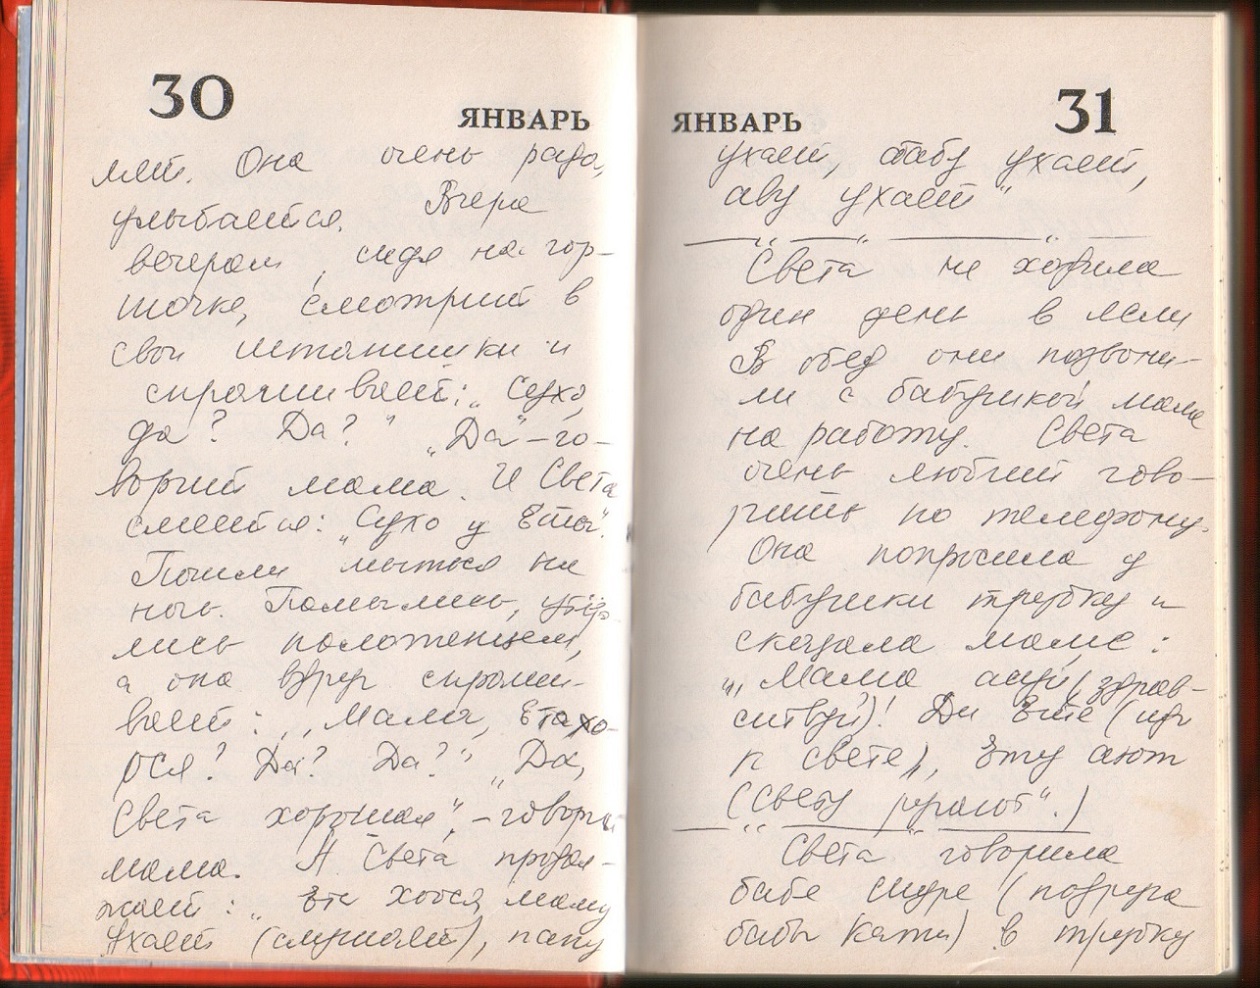 30
ЯНВАРЬ
лет. Она очень рада,
улыбается. Вчера
вечером, сидя на гор-
шочке, смотрит в
свои штанишки и
спрашивает: „Сухо,
да? Да?" „Да" – го-
ворит мама. И Света
смеется: „Сухо у Еты".
Пошли мыться на
ночь. Помылись,
лись полотенцем,
а она вдруг спраши-
вает: „Мама, Ета хо-
рося? Да? Да?" „Да,
Света хорошая", – говорит
мама. А Света продол-
жает: „Ета хоося, маму
ухает (слушает), папу
ЯНВАРЬ
31
ухает, бабу ухает,
аву ухает"
Света не ходила
один день в ясли
В обед они позвони-
ли с бабушкой маме
на работу. Света
очень любит гово-
рить по телефону.
Она попросила у
бабушки трубку и
сказала маме:
„Мама, (здрав-
ствуй)! Ди Ете (иди
к Свете), Ету ают
(Свету ругают".)
Света говорила
бабе Шуре (подруга
бабы Кати) в трубку